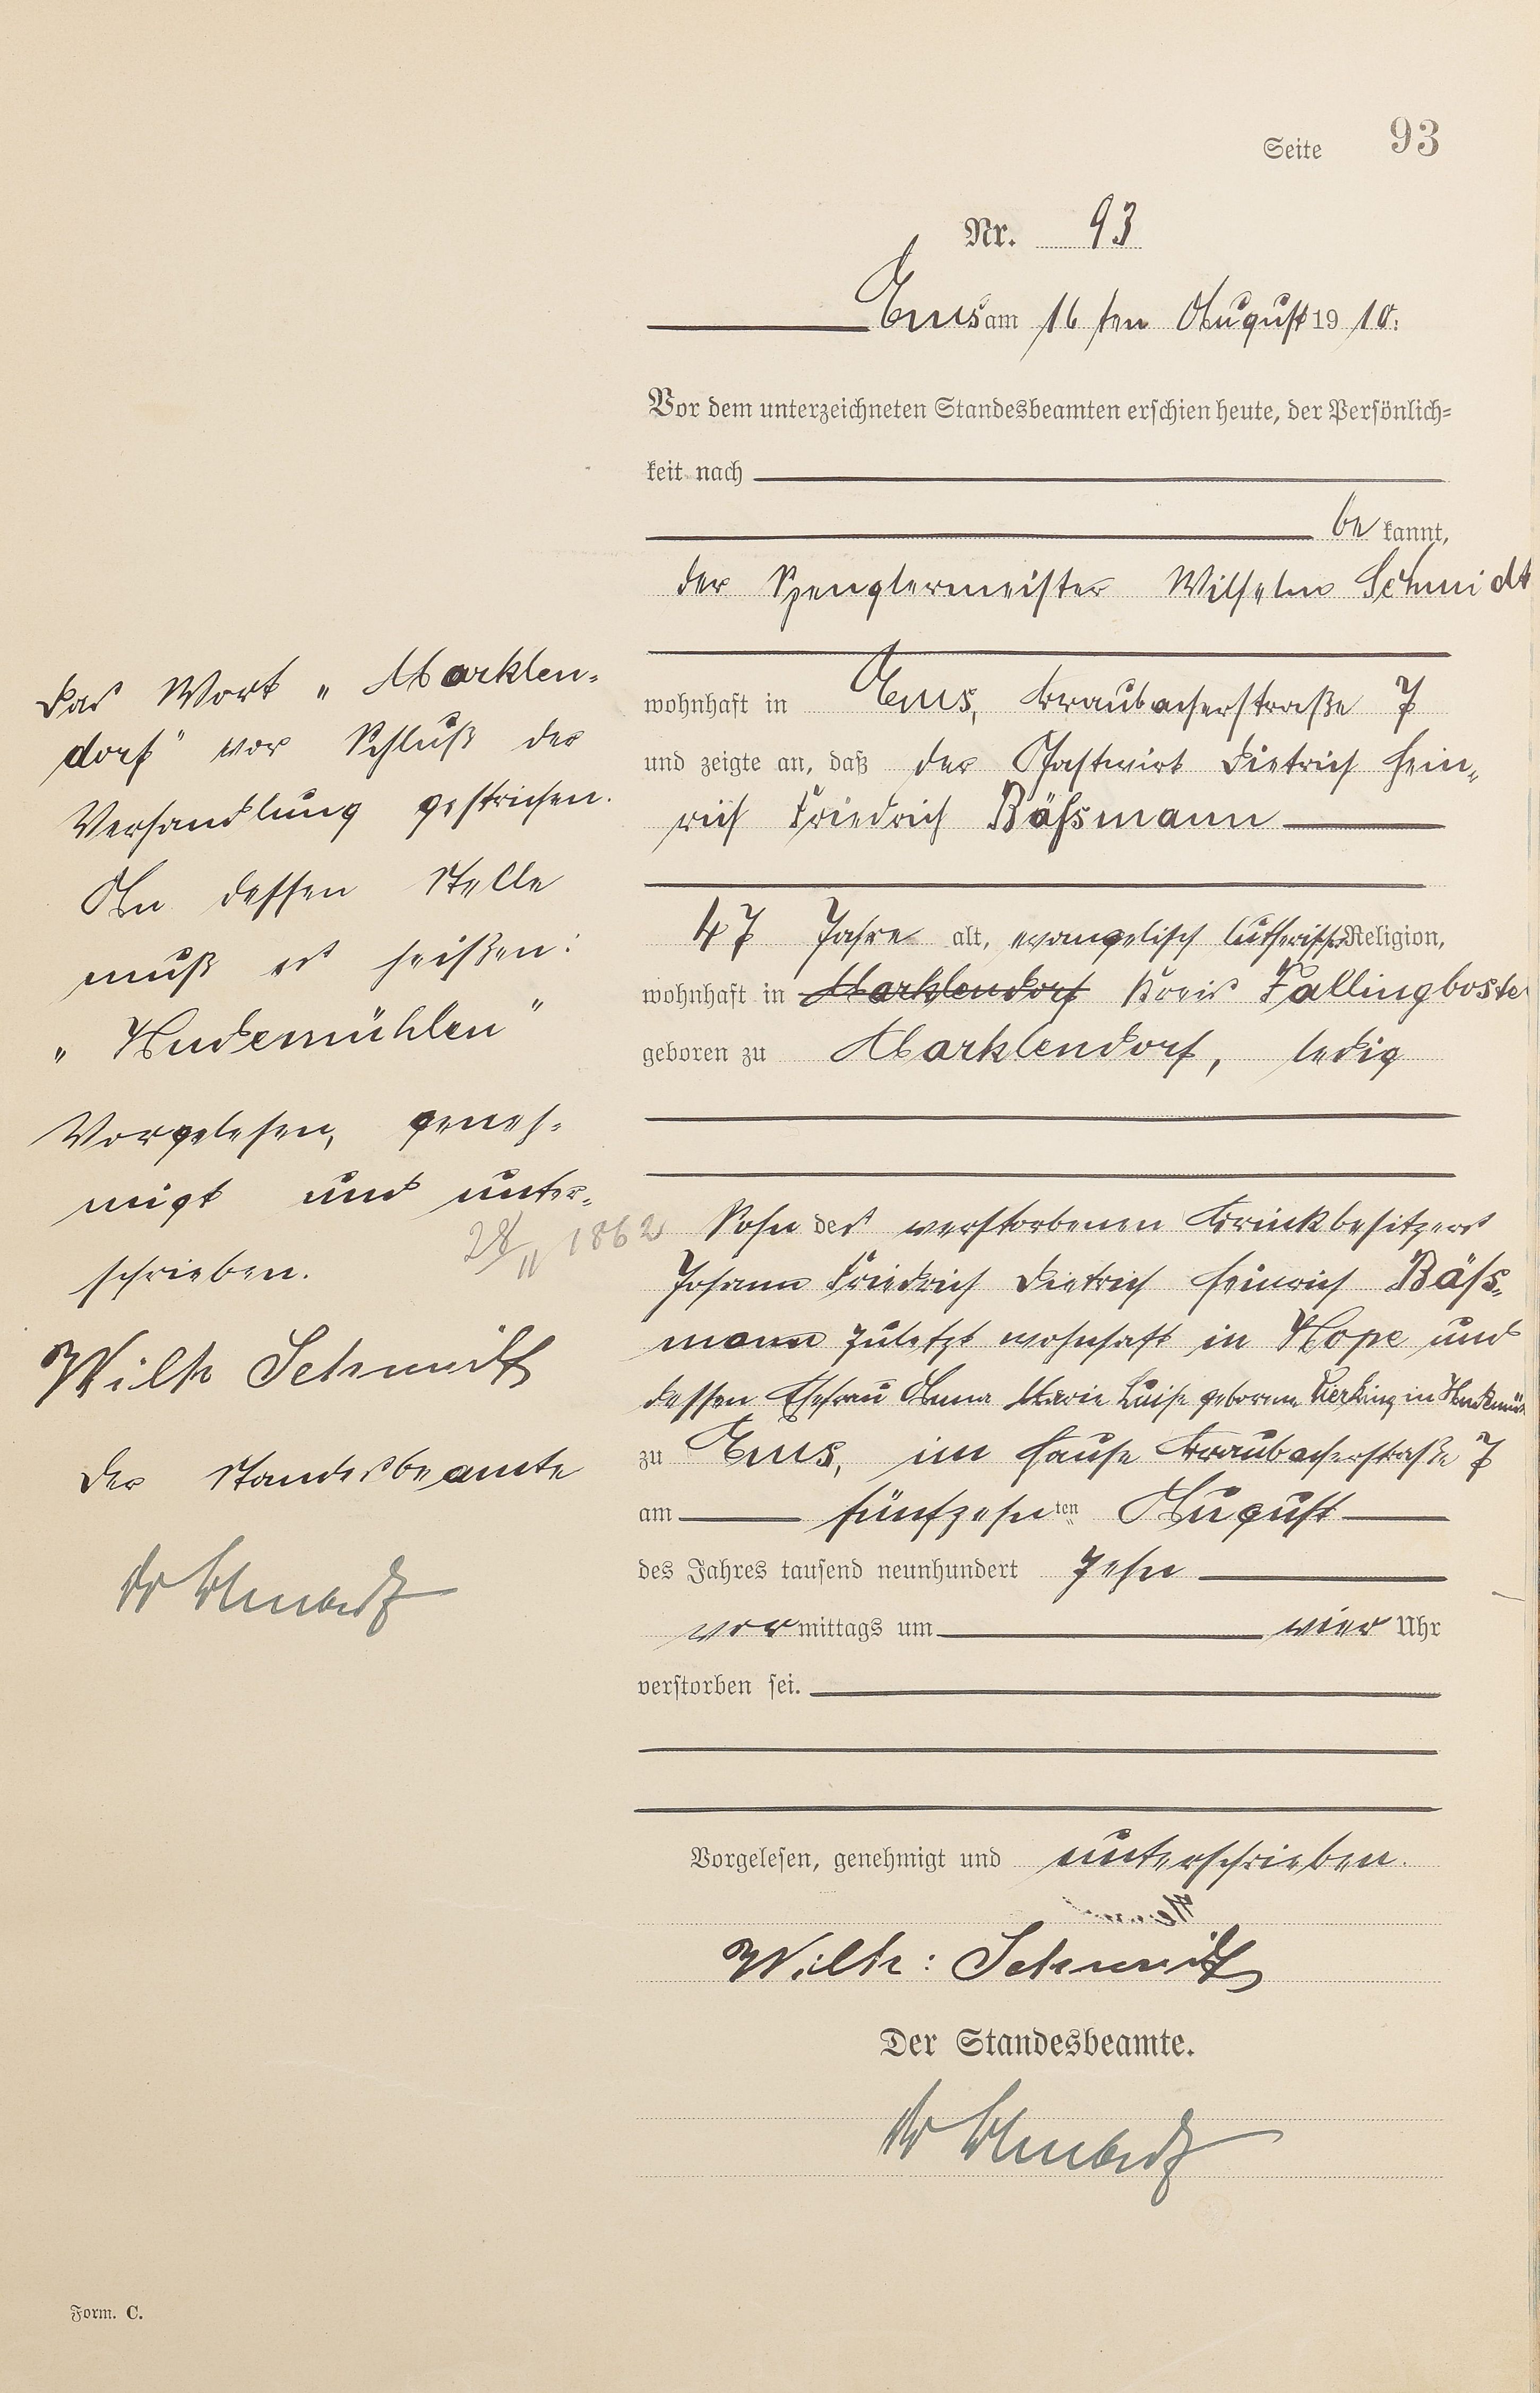 Seite 93
Nr. 93
Ems am 16 ten August 19 10.
Vor dem unterzeichneten Standesbeamten erschien heute, der Persönlich-
keit nach
be kannt,
der Spenglermeister Wilhelm Schmidt
wohnhaft in Ems, Braubacherstraße 7
und zeigte an, daß der Gastwirt Dietrich Hein-
rich Friedrich Bäßmann
47 Jahre alt, evangelisch lutherischer Religion,
wohnhaft in Marklendorf Kreis Fallingbostel
geboren zu Marklendorf, ledig
Sohn des verstorbenen Brinkbesitzers
Johann Friedrich Dietrich Heinrich Bäß-
mann zuletzt wohnhaft in Hope und
dessen Ehefrau Anna Marie Luise geborene in Hudemühlen
zu Ems, im Hause Braubacherstraße 7
am fünfzehn ten August
des Jahres tausend neunhundert zehn
vor mittags um vier Uhr
verstorben sei.
Vorgelesen, genehmigt und unterschrieben.
Wilh: Schmidt
Der Standesbeamte.
Das Wort „Marklen-
dorf" vor Schluß der
Verhandlung gestrichen.
An dessen Stelle
muß es heißen:
„Hudemühlen"
Vorgelesen, geneh-
migt und unter-
schrieben.
28/11 1862
Wilh Schmidt
Der Standesbeamte
Form. C.